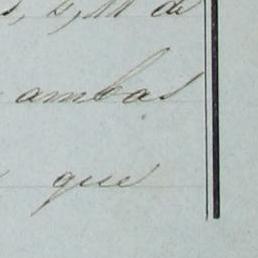 de
ambas
que